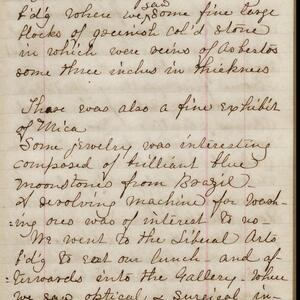 b'd'g where we saw some fine large
flocks of greenish col'd stone
in which were veins of Asbertos
some three inches in thickness
Thare was also a fine exhibit
of Mica
Some jewelry was interesting
composed of brilliant blue
moonstones from Brazil
A devolving machine for wash
-ing ores was of interest to us.
We went to the Liberal Arts
b'd'g to eat our lunch and af-
terwards into the Gallery. Where
we saw optical, & surgical in-